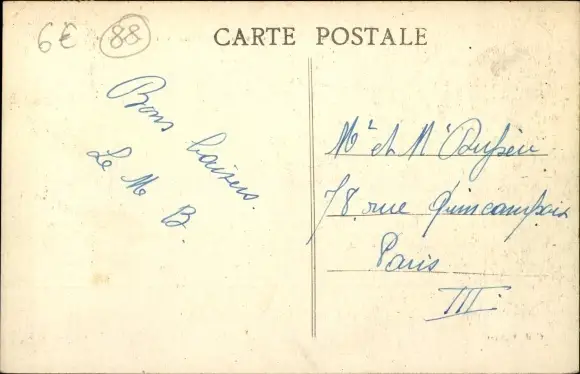 6€ 88
CARTE POSTALE
Bons baisers.
Le M B
Mr et Me
78 rue Quincampoix
Paris
III